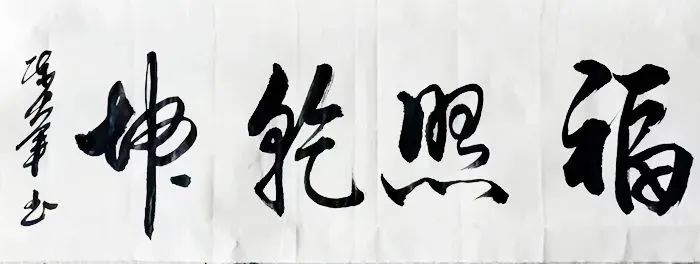 福照乾坤
书